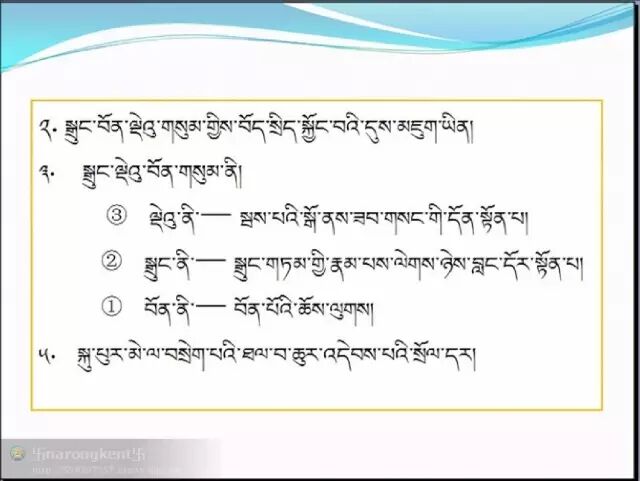 ༢. སྒྲུང་བོན་ལྡེའུ་གསུམ་གྱིས་བོད་སྲིད་སྐྱོང་བའི་དུས་མཇུག་ཡིན།
༣. སྒྲུང་ལྡེའུ་བོན་གསུམ་ནི།
③ ལྡེའུ་ནི་— སྦས་པའི་སྒོ་ནས་ཟབ་གསང་གི་དོན་སྟོན་པ།
② སྒྲུང་ནི་— སྒྲུང་གཏམ་གྱི་རྣམ་པས་ལེགས་ཉེས་བླང་དོར་སྟོན་པ།
① བོན་ནི་— བོན་པོའི་ཆོས་ལུགས།
༥. སྐུ་པུར་མེ་ལ་བསྲེག་པའི་ཐལ་བ་ཆུར་འདེབས་པའི་སྲོལ་དར།
卐narongkent卐